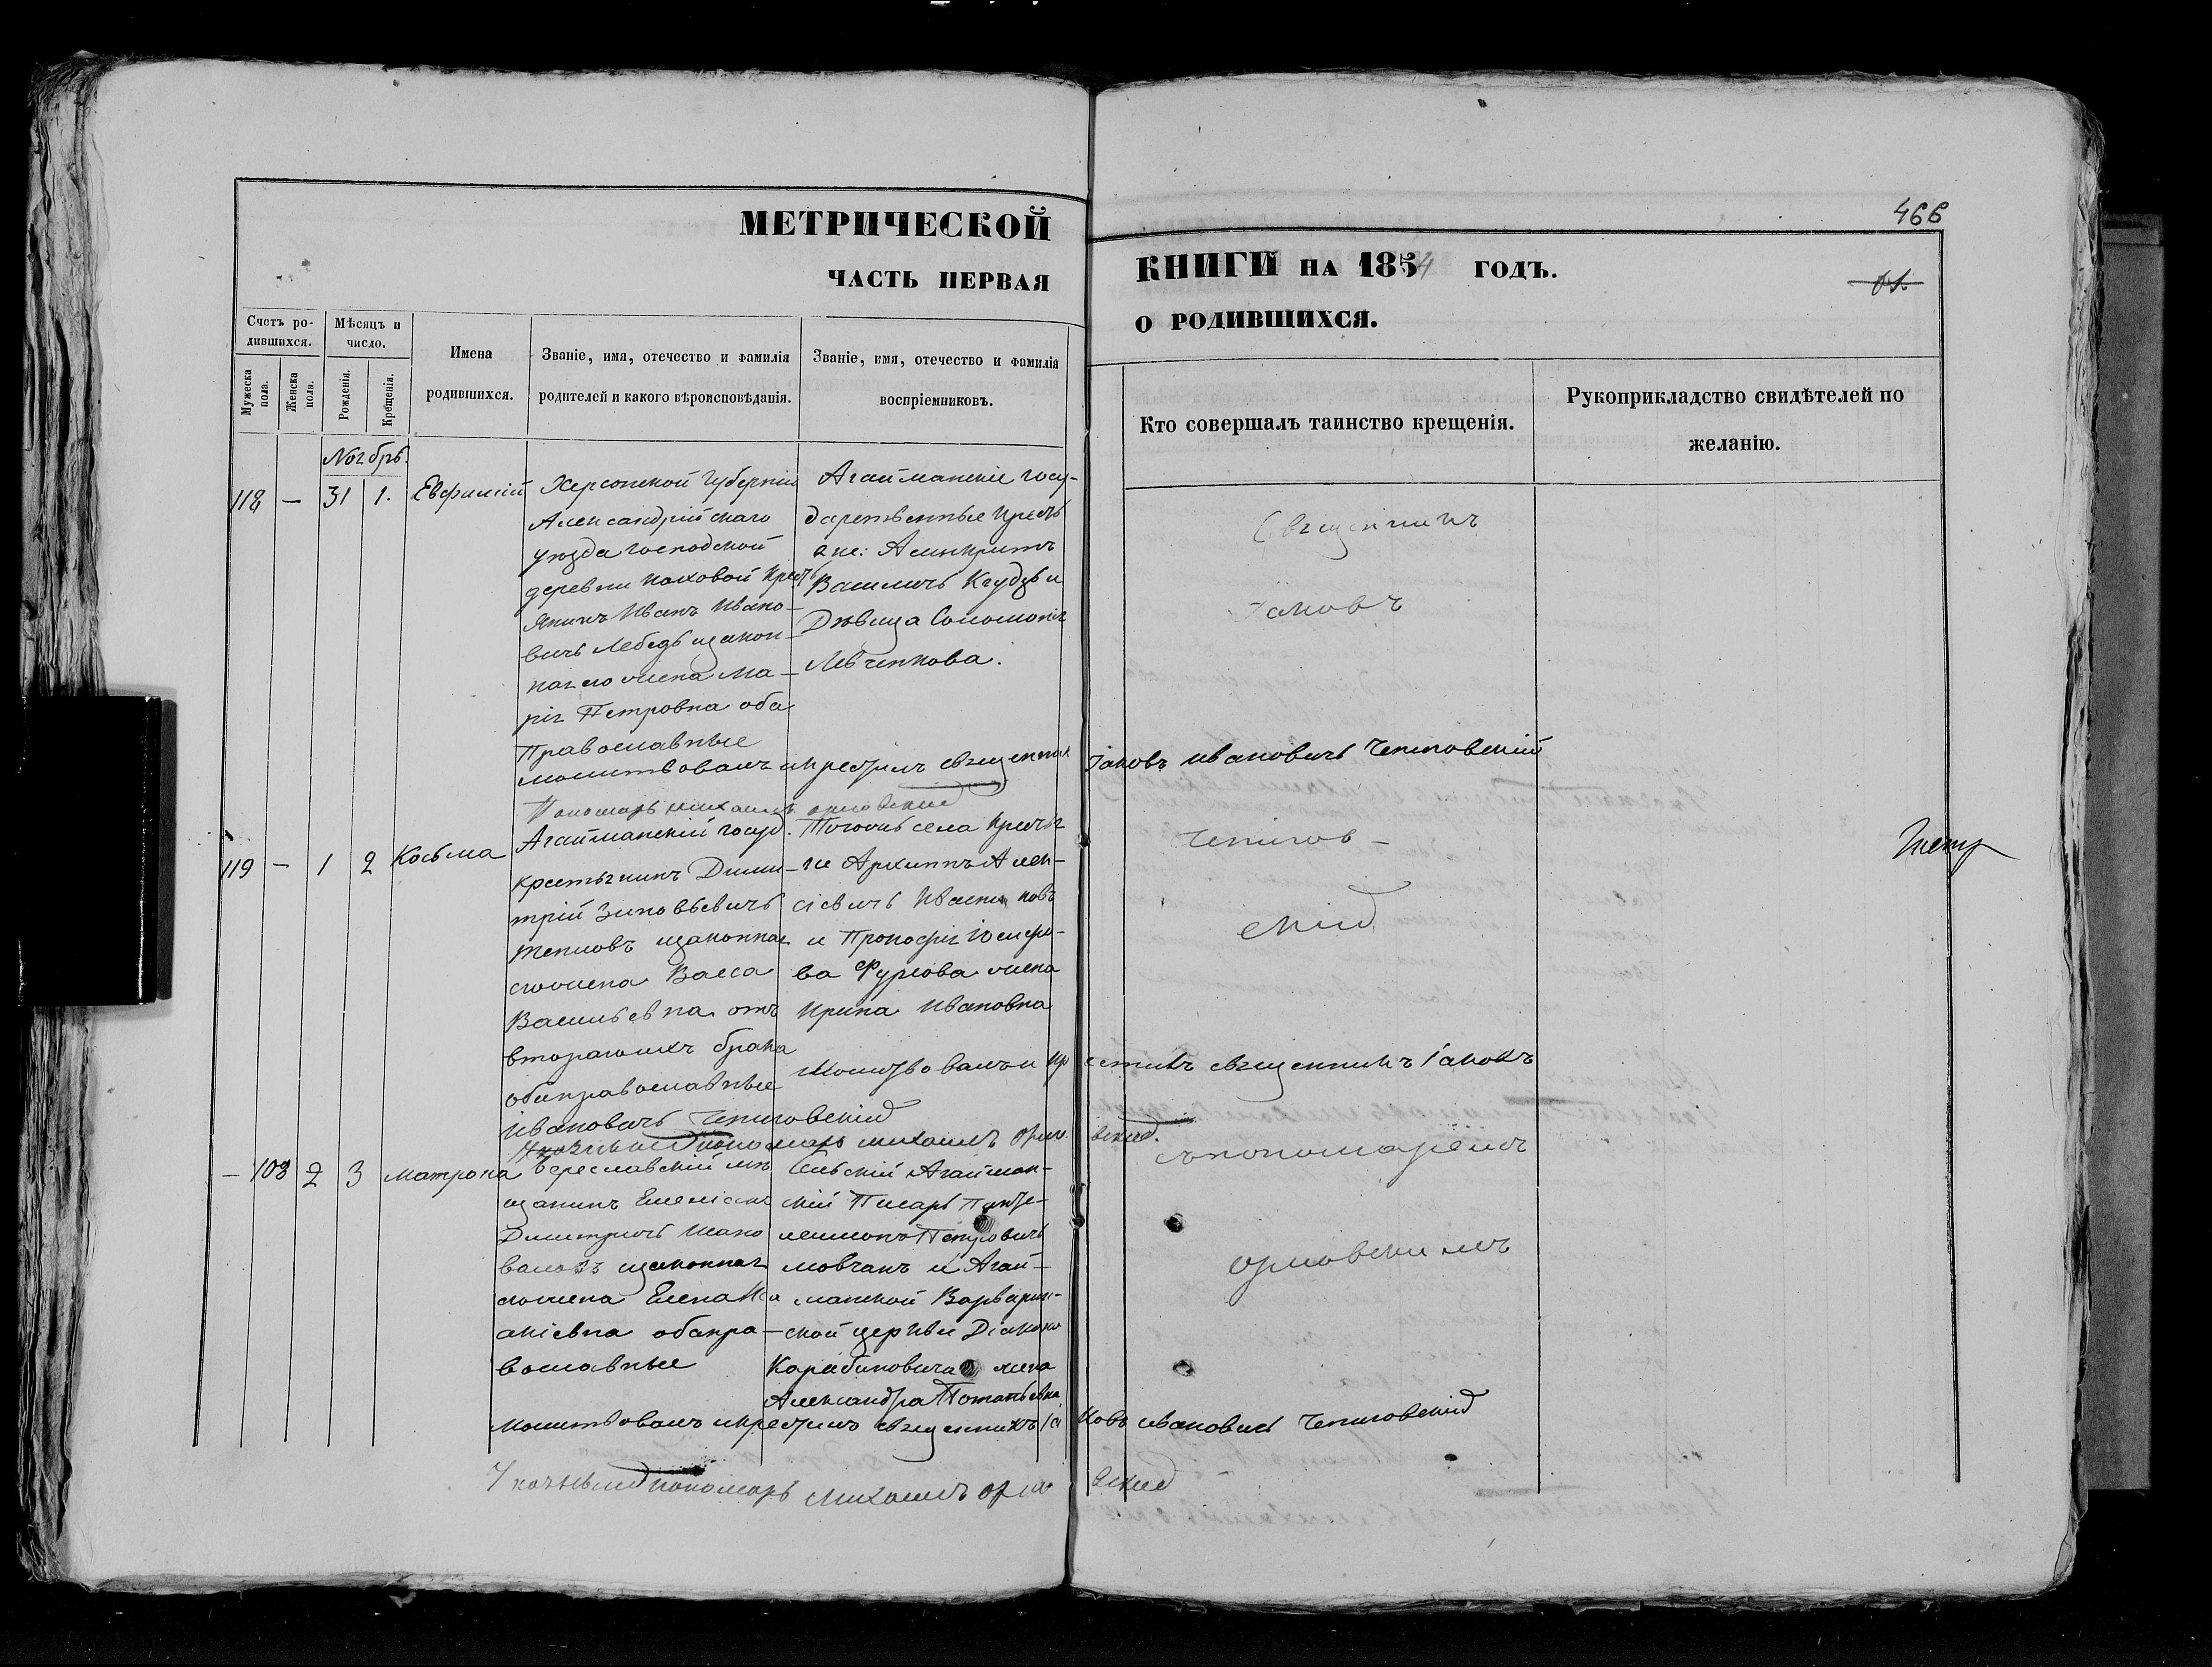 МЕТРИЧЕСКОЙ
ЧАСТЬ ПЕРВАЯ
КНИГИ НА 1854 ГОДЪ.
О РОДИВШИХСЯ.
466
Счетъ ро-
дившихся.
Мужеска
пола.
Женска
пола.
Мѣсяцъ и
число.
Рожденія.
Крещенія.
Имена
родившихся.
Званіе, имя, отечество и фамилія
родителей и какого вѣроисповѣданія.
Званіе, имя, отечество и фамилія
воспріемниковъ.
Кто совершалъ таинство крещенія.
Рукоприкладство свидѣтелей по
желанію.
118 — 31 1. Евфимій
Херсонской Губерніи
Александрійскаго
уѣзда господской
деревни
янинъ Иванъ Ивано-
вичъ Лебедь изакон-
ная его жена Ма-
рія Петровна оба
Православные
Агайманскіе госу-
дарственные крестья
не: Асинкритъ
Василичъ и
Дѣвица Соломонія
Левченкова.
Священникъ
Іаковъ
молитвовалъ икрестилъ священникъ Іаковъ ивановичъ Чепиговскій
Пономарь михаилъ орловскій
119 — 1 2 Косьма
Агайманскій госуд.
крестьянинъ Дими-
трій Зиновьевичъ
Тепловъ изаконная
егожена Васса
Васильевна отъ
втораго ихъ брака
обаправославные
Тогожъ села крестья
не Архиппъ Алек-
сіевичъ
и Прокофія Іосифо-
ва Фурсова жена
Ирина Ивановна
Чепигов-
скій
Молитвовалъ и крестилъ священникъ Іаковъ
Ивановичъ Чепиговскій
пономарь михаилъ орловскій.
— 108 2 3 Матрона
Береславскій мѣ
щанинъ Емеліанъ
Димитричъ Шапо
валовъ изаконная
егожена Елена
акіевна обапра-
вославные
Сельскій Агайман-
скій Писарь Панте-
леимонъ Петровичъ
Мовчанъ и Агай-
манской Варварин-
ской церкви Діакона
Карабиновича жена
Александра Потапьевна
съпономаремъ
орловскимъ
Молитвовалъ икрестилъ священникъ Іаковъ ивановичъ Чепиговскій
пономарь михаилъ орловскій